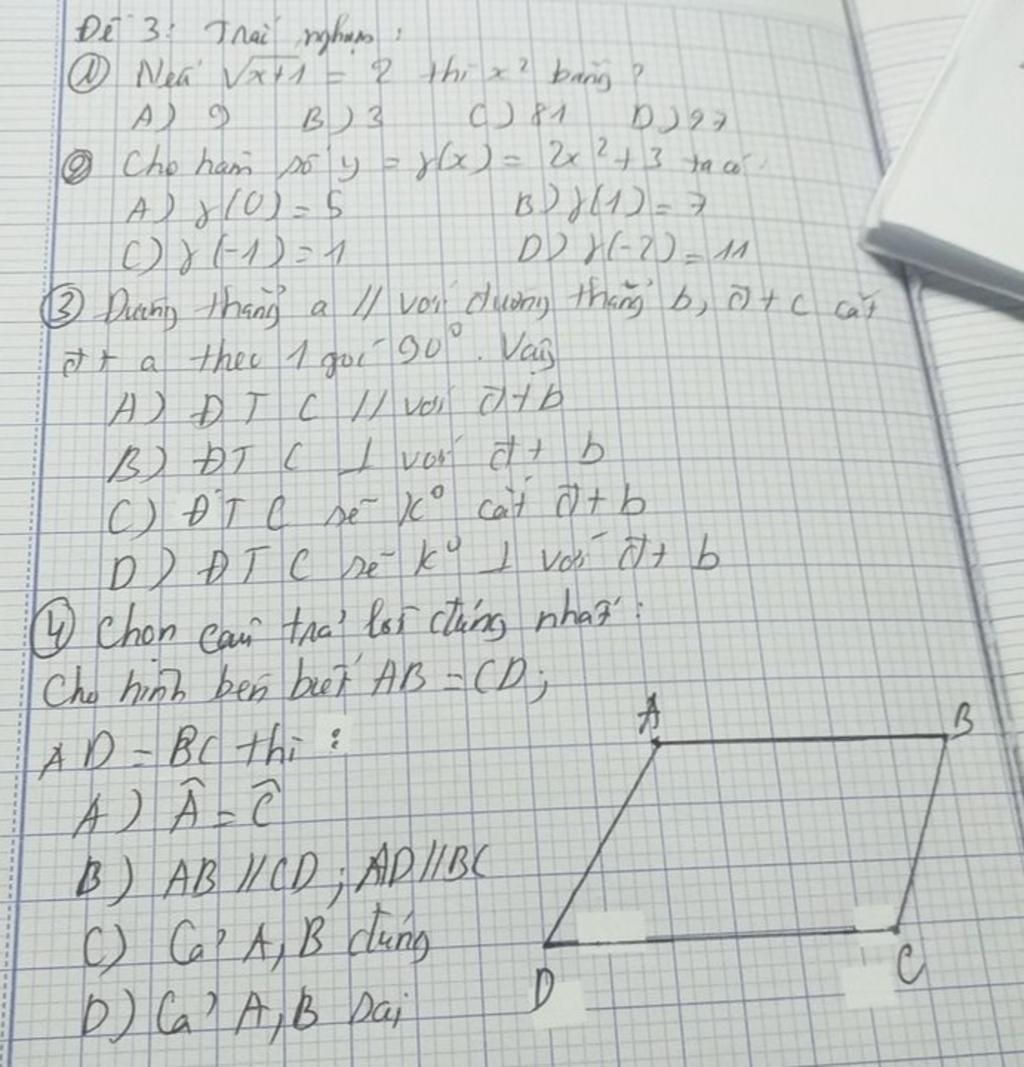 Đề 3: Trắc nghiệm:
① Nếu √x+1 = 2 thì x² bằng?
A) 9 B) 3 C) 81 D) 27
② Cho hàm số y = f(x) = 2x² + 3 ta có:
A) f(0) = 5 B) f(1) = 7
C) f(-1) = 1 D) f(-2) = 11
③ Đường thẳng a // với đường thẳng b, đt c cắt
đt a theo 1 góc 90°. Vậy
A) ĐT C // với đt b
B) ĐT C ⊥ với đt b
C) ĐT C sẽ k° cắt đt b
D) ĐT C sẽ k° ⊥ với đt b
④ Chọn câu trả lời đúng nhất:
Cho hình bên biết AB = CD;
AD = BC thì:
A) Â = Ĉ
B) AB // CD; AD // BC
C) Cả A, B đúng
D) Cả A, B sai
A B
D C